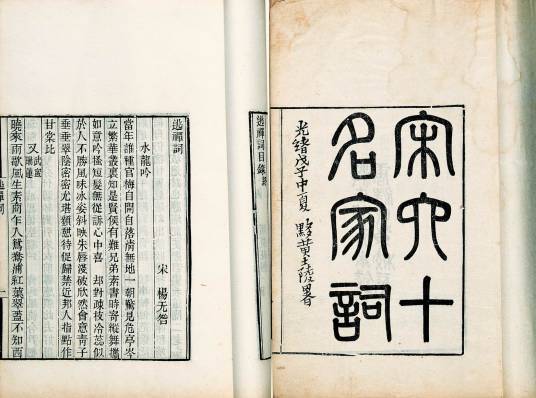 宋六十
名家詞
光緒戊子中夏 黟黃士陵署
逃禪詞目錄終
逃禪詞
宋 楊无咎
水龍吟
當年誰種官梅自開自落清無地一朝驚見危亭岑
立繁華叢裏知是賢侯有難兄弟素書時寄縱舞攜
如意吟搔短髮無從誹心中喜 却對疎枝冷蕊似
於人不勝風味冰姿斜映朱唇淺破欣然會意青子
垂垂翠陰密密尤堪頻憩待促歸禁近邦人指點作
甘棠比
又 武寧瑞蓮
曉來雨歇風生素商乍入鴛鴦浦紅葉翠蓋不知西
逃禪詞 一